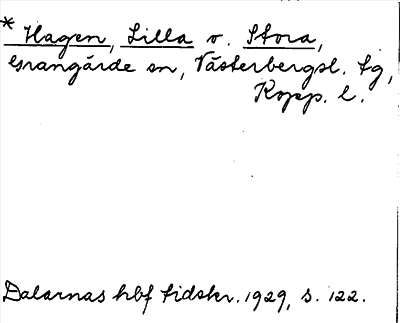 * Hagen, Lilla o. Stora,
Grangärde sn, Västerbergsl. tg,
Kopp. l.
Dalarnas hbf tidskr. 1929, s. 122.